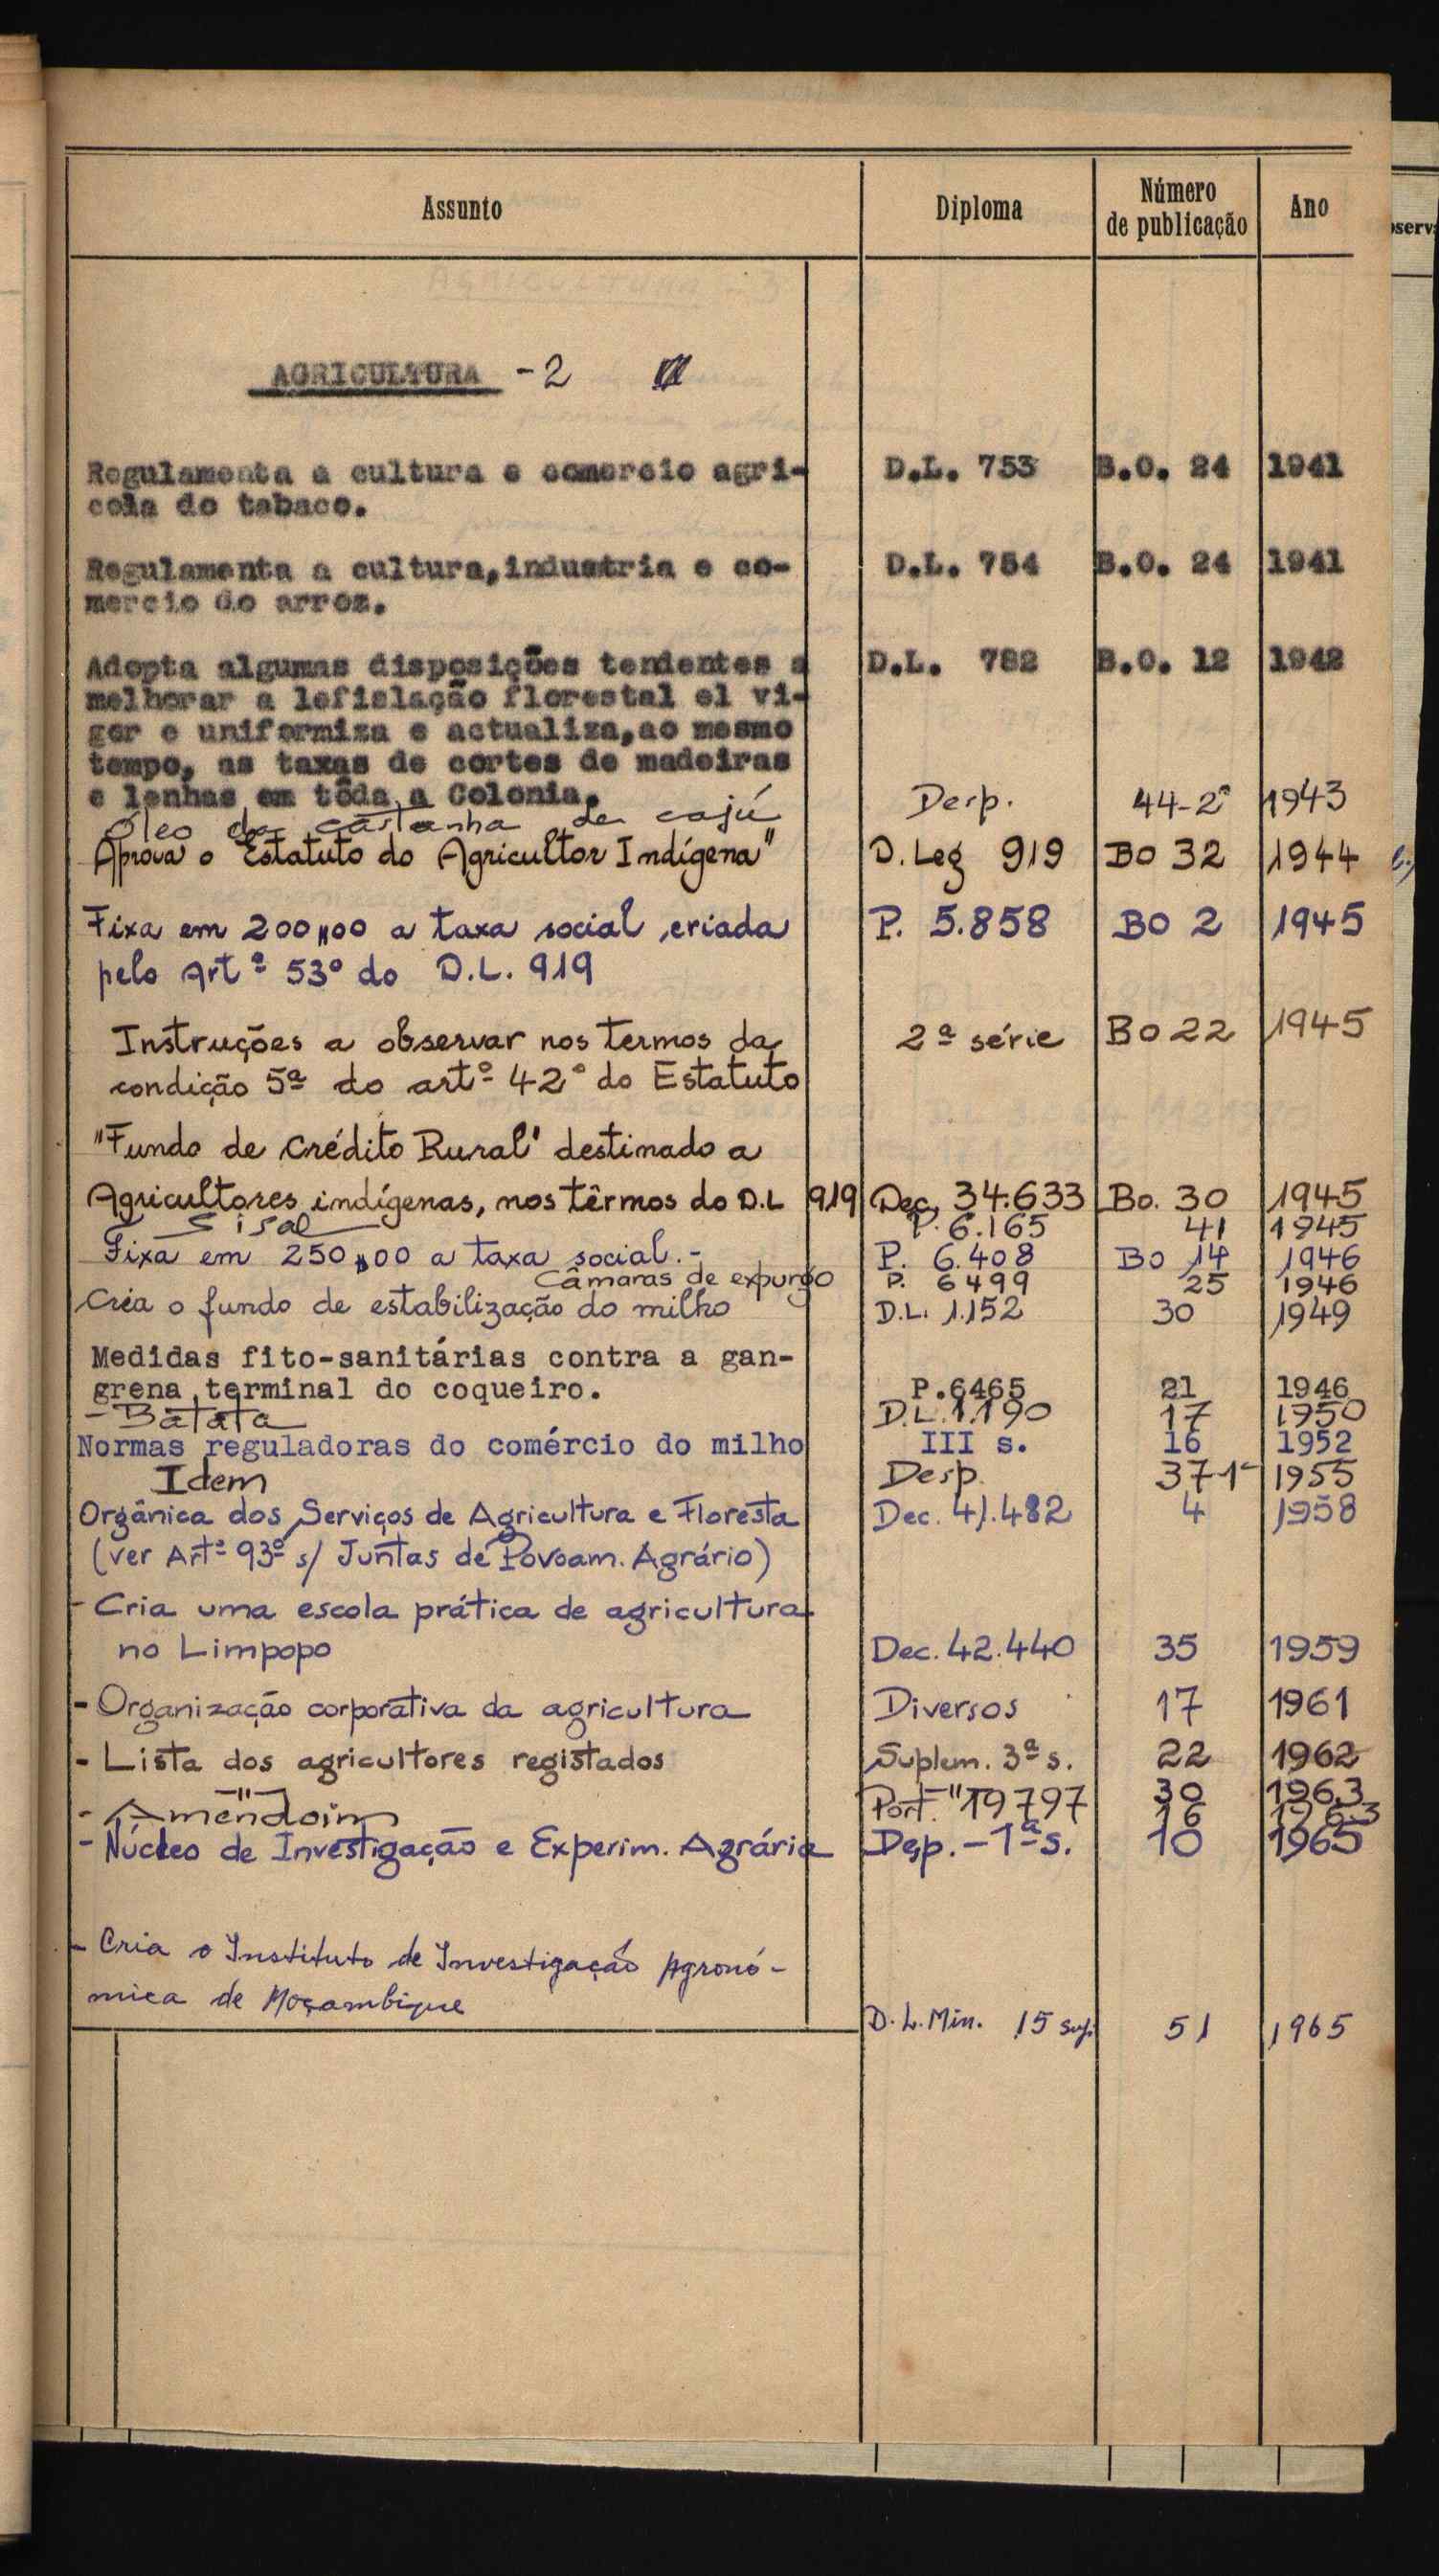 Assunto Diploma Número de publicação Ano
AGRICULTURA - 2
Regulamenta a cultura e comercio agri- D.L. 753 B.O. 24 1941
cola do tabaco.
Regulamenta a cultura,industria e co- D.L. 754 B.O. 24 1941
mercio do arroz.
Adopta algumas disposições tendentes a D.L. 782 B.O. 12 1942
melhorar a lefislação florestal el vi-
gor e uniformiza e actualiza,ao mesmo
tempo, as taxas de cortes de madeiras
e lenhas em tôda a Colonia.
Óleo da castanha de cajú Desp. 44-2ª 1943
Aprova o "Estatuto do Agricultor Indígena" D. Leg 919 BO 32 1944
Fixa em 200$00 a taxa social criada P. 5.858 BO 2 1945
pelo Artº 53º do D.L. 919
Instruções a observar nos termos da 2ª série BO 22 1945
condição 5ª do artº 42º do Estatuto
"Fundo de Crédito Rural" destinado a
Agricultores indígenas, nos têrmos do D.L 919 Dec. 34.633 Bo. 30 1945
Sisal P. 6.165 41 1945
Fixa em 250$00 a taxa social.- P. 6.408 BO 14 1946
Câmaras de expurgo P. 6499 25 1946
Cria o fundo de estabilização do milho D.L. 1.152 30 1949
Medidas fito-sanitárias contra a gan-
grena terminal do coqueiro. P.6465 21 1946
- Batata D.L. 1.190 17 1950
Normas reguladoras do comércio do milho III s. 16 1952
Idem Desp. 37-1ª 1955
Orgânica dos Serviços de Agricultura e Floresta Dec. 41.482 4 1958
(ver Artº 93º s/ Juntas de Povoam. Agrário)
- Cria uma escola prática de agricultura
no Limpopo Dec. 42.440 35 1959
- Organização corporativa da agricultura Diversos 17 1961
- Lista dos agricultores registados Suplem. 3ª s. 22 1962
-"- " 30 1963
- Amendoim Port. 19797 16 1963
- Núcleo de Investigação e Experim. Agrária Desp. - 1ª s. 10 1965
- Cria o Instituto de Investigação Agronó-
mica de Moçambique D.L. Min. 15 sup. 51 1965